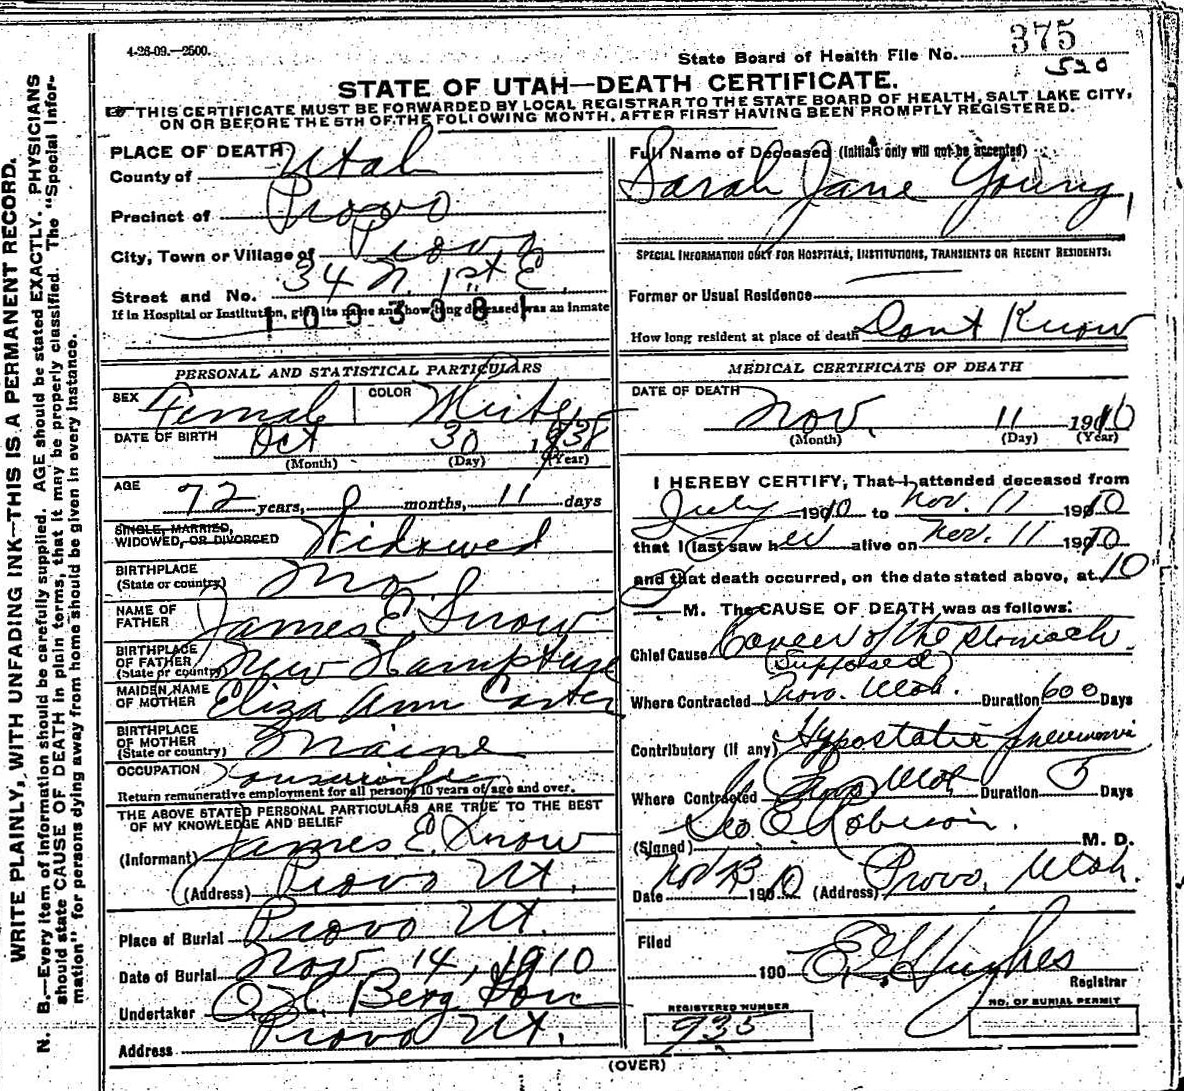 4-26-09.—2500.
State Board of Health File No. 375
520
STATE OF UTAH—DEATH CERTIFICATE.
THIS CERTIFICATE MUST BE FORWARDED BY LOCAL REGISTRAR TO THE STATE BOARD OF HEALTH, SALT LAKE CITY,
ON OR BEFORE THE 5TH OF THE FOLLOWING MONTH, AFTER FIRST HAVING BEEN PROMPTLY REGISTERED.
WRITE PLAINLY, WITH UNFADING INK—THIS IS A PERMANENT RECORD.
N. B.—Every item of information should be carefully supplied. AGE should be stated EXACTLY. PHYSICIANS
should state CAUSE OF DEATH in plain terms, that it may be properly classified. The "Special Infor-
mation" for persons dying away from home should be given in every instance.
PLACE OF DEATH
County of Utah
Precinct of Provo
City, Town or Village of Provo
Street and No. 34 N. 1st E.
If in Hospital or Institution, give its name and how long deceased was an inmate
1003381
PERSONAL AND STATISTICAL PARTICULARS
SEX Female COLOR White
DATE OF BIRTH Oct 30 1838
(Month) (Day) (Year)
AGE 72 years, 0 months, 11 days
SINGLE, MARRIED,
WIDOWED, OR DIVORCED Widowed
BIRTHPLACE
(State or country) Mo.
NAME OF
FATHER James E. Snow
BIRTHPLACE
OF FATHER
(State or country) New Hampshire
MAIDEN NAME
OF MOTHER Eliza Ann Carter
BIRTHPLACE
OF MOTHER
(State or country) Maine
OCCUPATION
Return remunerative employment for all persons 10 years of age and over.
THE ABOVE STATED PERSONAL PARTICULARS ARE TRUE TO THE BEST
OF MY KNOWLEDGE AND BELIEF
(Informant) James E. Snow
(Address) Provo Ut.
Place of Burial Provo Ut.
Date of Burial Nov 14, 1910
Undertaker Berg Son
Address Provo Ut.
Full Name of Deceased (Initials only will not be accepted)
Sarah Jane Young,
SPECIAL INFORMATION ONLY FOR HOSPITALS, INSTITUTIONS, TRANSIENTS OR RECENT RESIDENTS:
Former or Usual Residence
How long resident at place of death Dont Know
MEDICAL CERTIFICATE OF DEATH
DATE OF DEATH
Nov. 11 1910
(Month) (Day) (Year)
I HEREBY CERTIFY, That I attended deceased from
July 1910 to Nov. 11 1910
that I last saw her alive on Nov. 11 1910
and that death occurred, on the date stated above, at 10
M. The CAUSE OF DEATH was as follows:
Chief Cause Cancer of the stomach.
(Supposed)
Where Contracted Provo. Utah. Duration 600 Days
Contributory (if any) Hypostatic pneumoni
Where Contracted Provo Utah Duration 5 Days
(Signed) Geo. E. Robison. M. D.
Date Nov 13 1910 (Address) Provo, Utah.
Filed
190 E. G. Hughes
Registrar
REGISTERED NUMBER
935
NO. OF BURIAL PERMIT
(OVER)